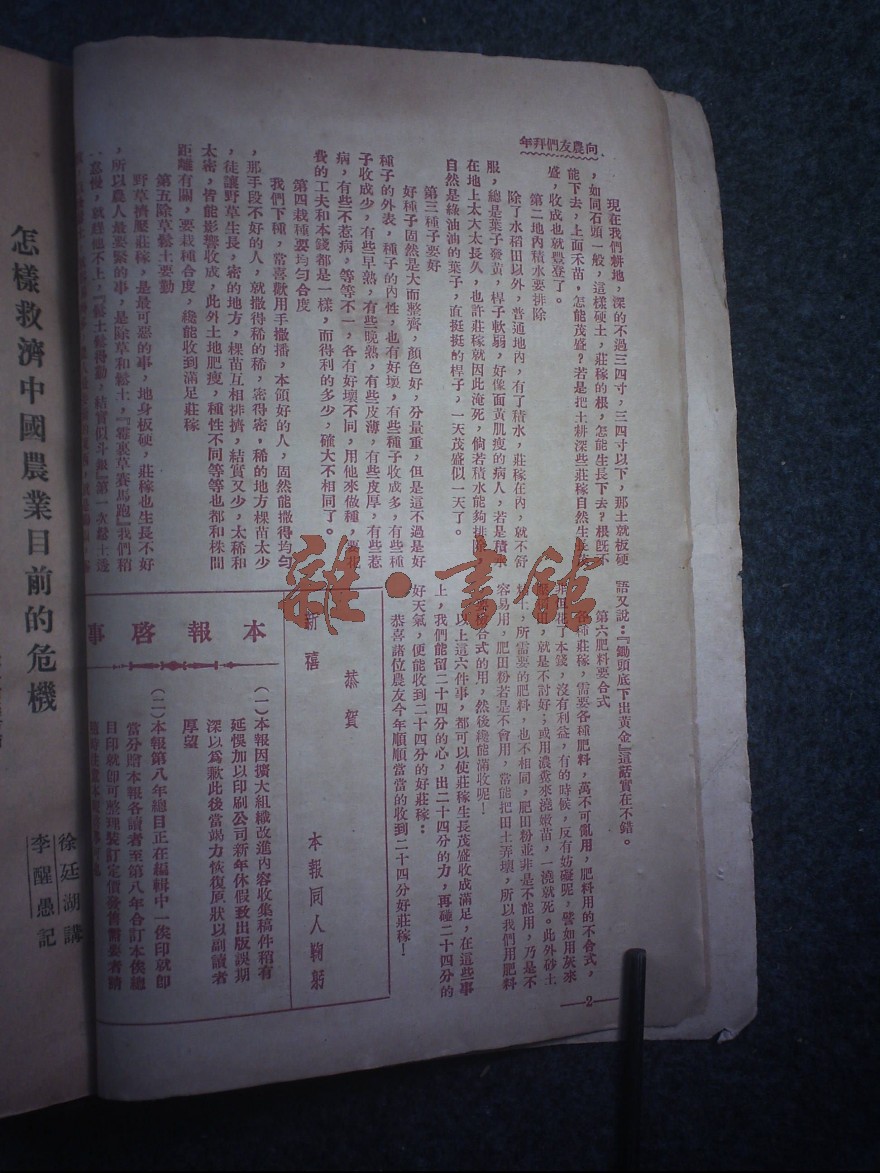 向農友們拜年
現在我們耕地，深的不過三四寸，三四寸以下，那土就板硬
，如同石頭一般，這樣硬土，莊稼的根，怎能生長下去，根旣不
能下去，上面禾苗，怎能茂盛？若是把土耕深些莊稼自然生長茂
盛，收成也就豐登了。
第二地內積水要排除
除了水稻田以外，普通地內，有了積水，莊稼在內，就不舒
服，總是葉子發黃，桿子軟弱，好像面黃肌瘦的病人，若是積水
在地上太大太長久，也許莊稼就因此淹死，倘若積水能夠排除
自然是綠油油的葉子，直挺挺的桿子，一天茂盛似一天了。
第三種子要好
好種子固然是大而整齊，顏色好，分量重，但是這不過是好
種子的外表，種子的內性，也有好壞，有些種子收成多，有些種
子收成少，有些早熟，有些晚熟，有些皮薄，有些皮厚，有些惹
病，有些不惹病，等等不一，各有好壞不同，用他來做種，要花
費的工夫和本錢都是一樣，而得利的多少，確大不相同了。
第四栽種要均勻合度
我們下種，常喜歡用手撒播，本領好的人，固然能撒得均勻
，那手段不好的人，就撒得稀的稀，密得密，稀的地方棵苗太少
，徒讓野草生長，密的地方，棵苗互相排擠，結實又少，太稀和
太密，皆能影響收成，此外土地肥瘦，種性不同等等也都和株間
距離有關，要栽種合度，纔能收到滿足莊稼
第五除草鬆土要勤
野草擠壓莊稼，是最可惡的事，地身板硬，莊稼也生長不好
，所以農人最要緊的事，是除草和鬆土，『霉裏草賽馬跑』我們稍
怠慢，就趕他不上，『鬆土鬆得勤，結實似斗銀』第一次鬆土
語又說：『鋤頭底下出黃金』這話實在不錯。
第六肥料要合式
各種莊稼，需要各種肥料，萬不可亂用，肥料用的不合式，
非但花了本錢，沒有利益，有的時候，反有妨礙呢，譬如用灰來
就是不討好；或用濃糞來澆嫩苗，一澆就死。此外砂土
粘土，所需要的肥料，也不相同，肥田粉並非是不能用，乃是不
容易用，肥田粉若是不會用，當能把田土弄壞，所以我們用肥料
要揀合式的用，然後纔能滿收呢！
以上這六件事，都可以使莊稼生長茂盛收成滿足，在這些事
上，我們能留二十四分的心，出二十四分的力，再碰二十四分的
好天氣，便能收到二十四分的好莊稼：
恭喜諸位農友今年順順當當的收到二十四分好莊稼！
恭賀
新禧
本報同人鞠躬
本報啓事
（一）本報因擴大組織改進內容收集稿件稍有
延悞加以印刷公司新年休假致出版誤期
深以爲歉此後當竭力恢復原狀以副讀者
厚望
（二）本報第八年總目正在編輯中一俟印就卽
當分贈本報各讀者至第八年合訂本俟總
目印就卽可整理裝訂定價發售需要者請
2
雜·書館
怎樣救濟中國農業目前的危機
徐廷湖講
李醒愚記